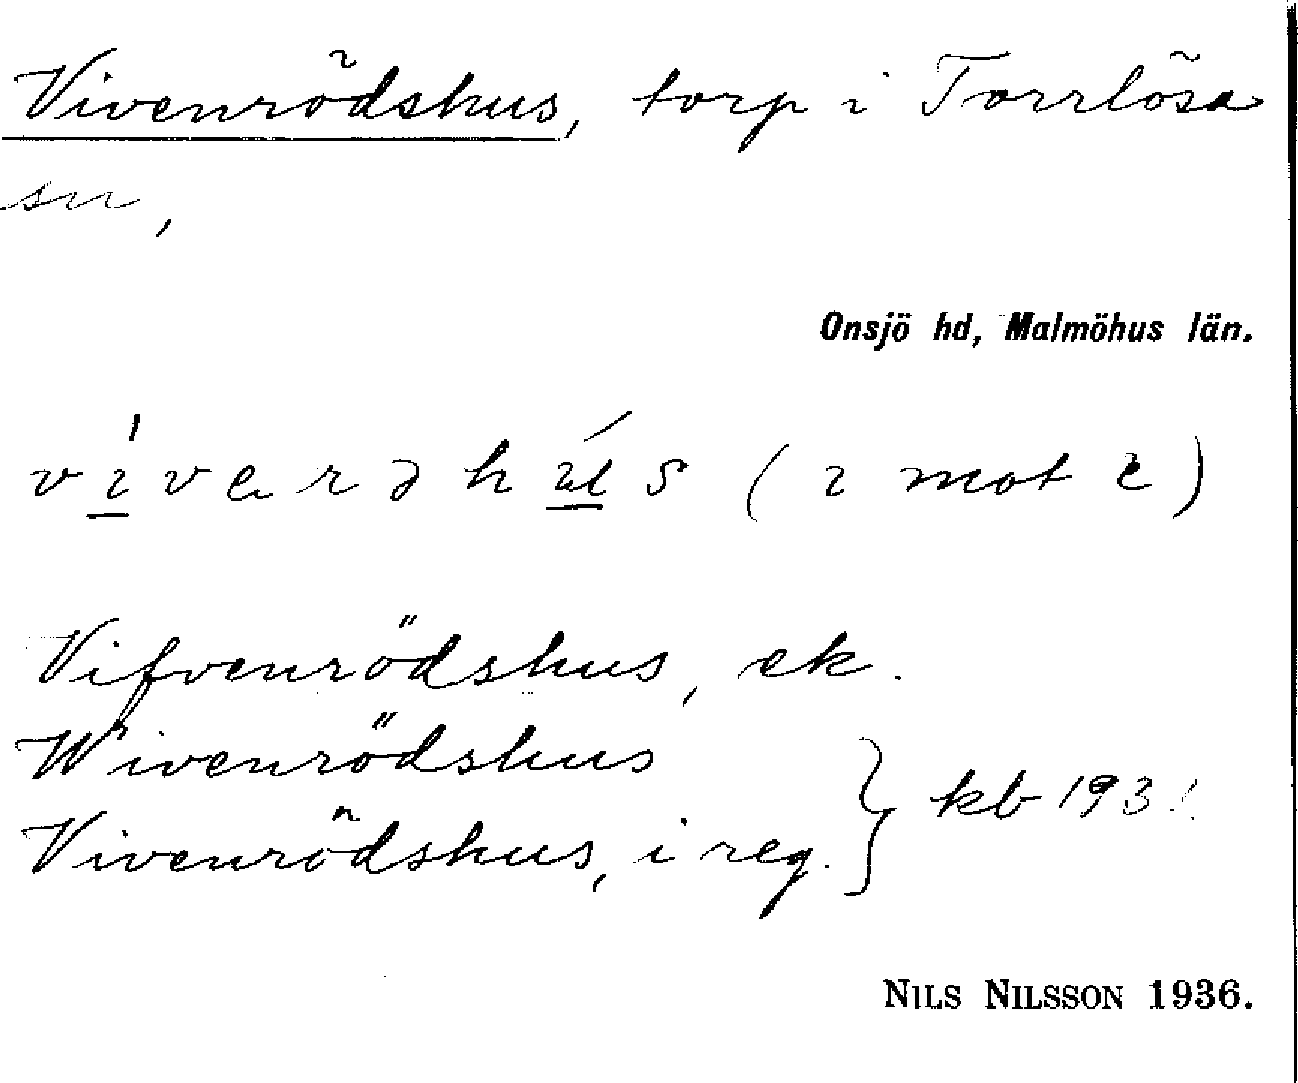 Vivenrödshus, torp i Torrlösa
sn,
Onsjö hd, Malmöhus län.
vívarəhús (ɪ mot e)
Vifvenrödshus, ek.
Wivenrödshus
Vivenrödshus, i reg. } kb 1931
NILS NILSSON 1936.